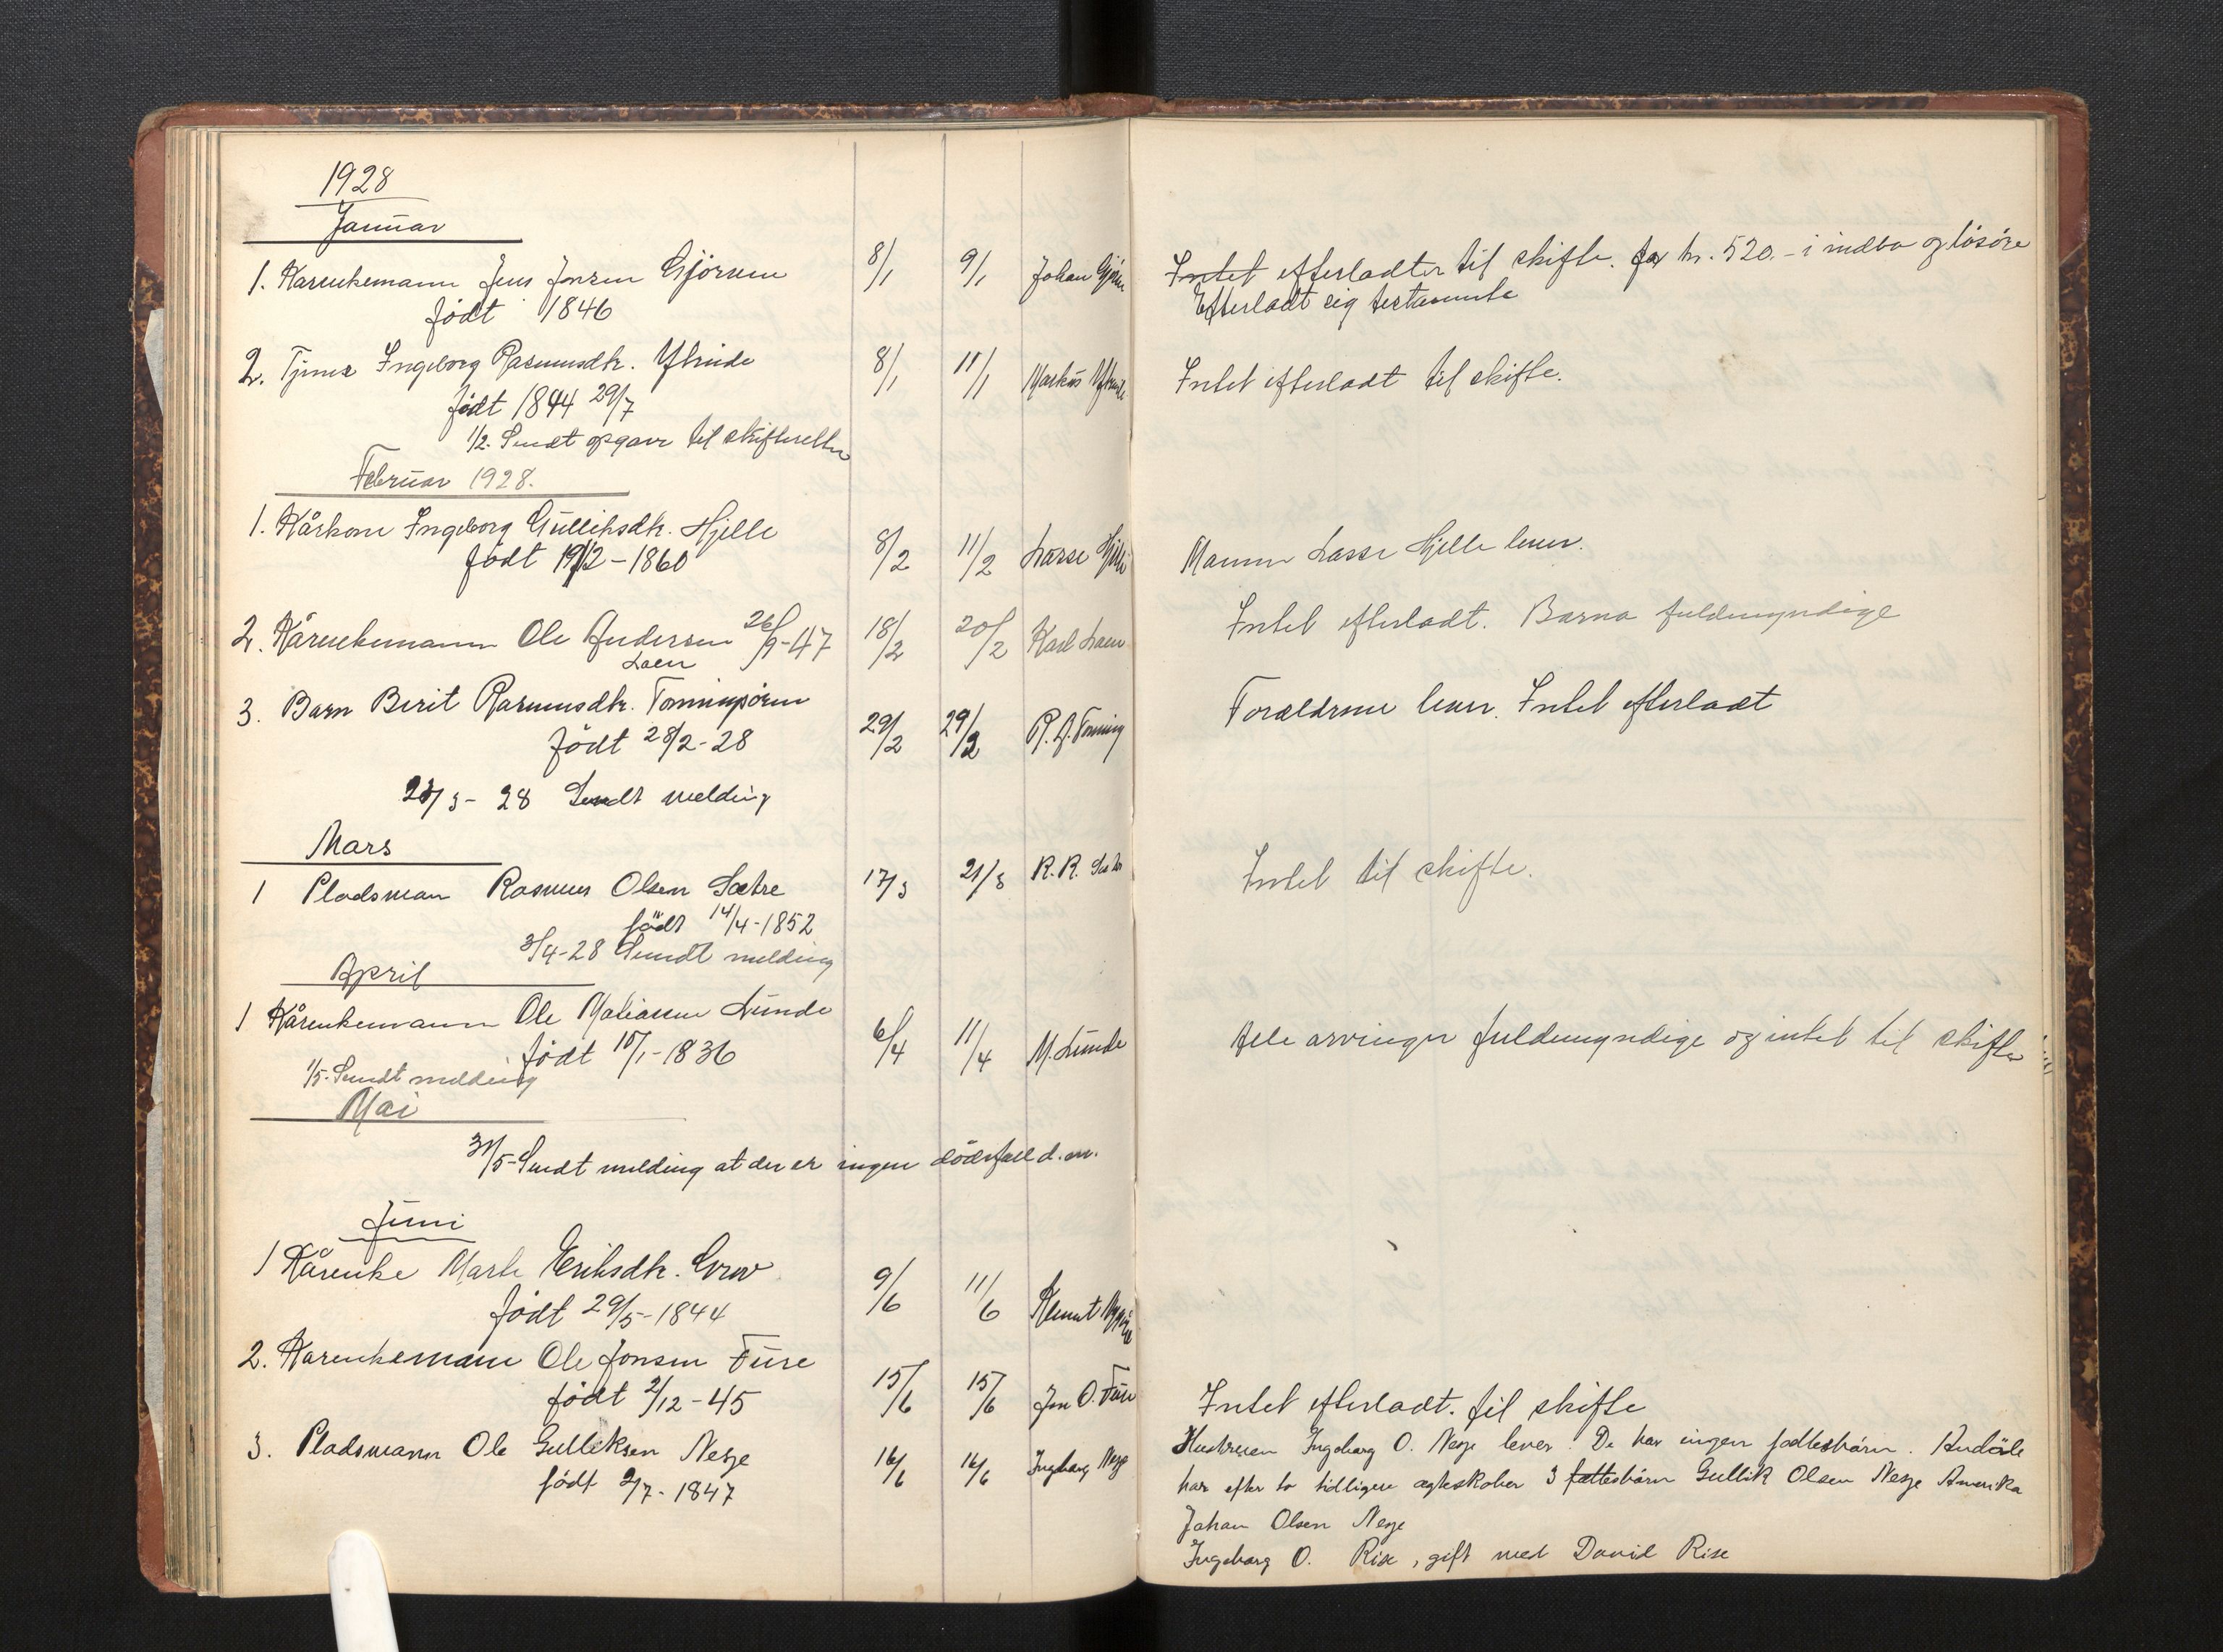 1928
Januar
1. Karenkemann Jens Jonsen Gjörven 8/1 9/1 Johan Gjörven
født 1846
Intet efterladter til skifte. for kr. 520.- i indbo og lösöre
Efterladt sig testamente
2. Tjener Ingeborg Rasmusdtr. Ytreide 8/1 11/1 Markus Ytreide
født 1844 29/7
Intet efterladt til skifte.
1/2. Sendt opgave til skifteretten
Februar 1928.
1. Kårkone Ingeborg Gullciksdtr. Hjelle 8/2 11/2 Lasse Hjelle
født 19/12-1860
Mannen Lasse Hjelle lever.
2. Kårenkemann Ole Andersen 26/9-47 18/2 20/2 Karl Loen
Loen
Intet efterladt. Barna fuldmyndige
3. Barn Berit Rasmusdtr. Tonningsören 29/2 29/2 R. A. Tonning
født 28/2-28
Forældrene lever. Intet efterladt
23/3-28 Sendt melding
Mars
1 Pladsman Rasmus Olsen Sætre 17/3 21/3 R. R. Sætre
født 14/4-1852
Intet til skifte.
3/4-28 Sendt melding
April
1 Kårenkemann Ole Matiassen Lunde 6/4 11/4 M. Lunde
født 15/1-1836
Alle arvinger fuldmyndige og intet til skifte
1/5. Sendt melding
Mai
31/5-Sendt melding at der er ingen dödsfall d. m.
Juni
1 Kårenke Marte Eriksdtr. Grov 9/6 11/6
født 29/5-1844
2. Karenkemann Ole Jonsen Fure 15/6 15/6 Jon O. Fure
født 2/12-45
Intet efterladt. til skifte
3. Pladsmann Ole Gulleksen Nesje 16/6 16/6 Ingeborg Nesje
født 2/7-1847
Hustruen Ingeborg O. Nesje lever. De har ingen fællesbörn. Avdöde
har efter to tidligere ægteskaber 3 fællesbörn Gullik Olsen Nesje Amerika
Johan Olsen Nesje
Ingeborg O. Rise, gift med David Rise